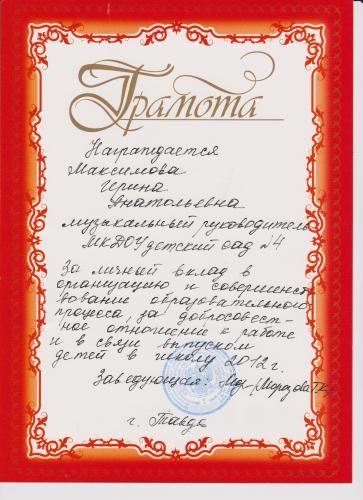 Грамота
Награждается
Максимова
Ирина
Анатольевна
музыкальный руководитель
МКДОУ детский сад №4
За личный вклад в
организацию и совершенст
вование образовательного
процесса, за добросовест-
ное отношение к работе
и в связи выпуском
детей в школу 2012г.
Заведующая:
г. Тавда